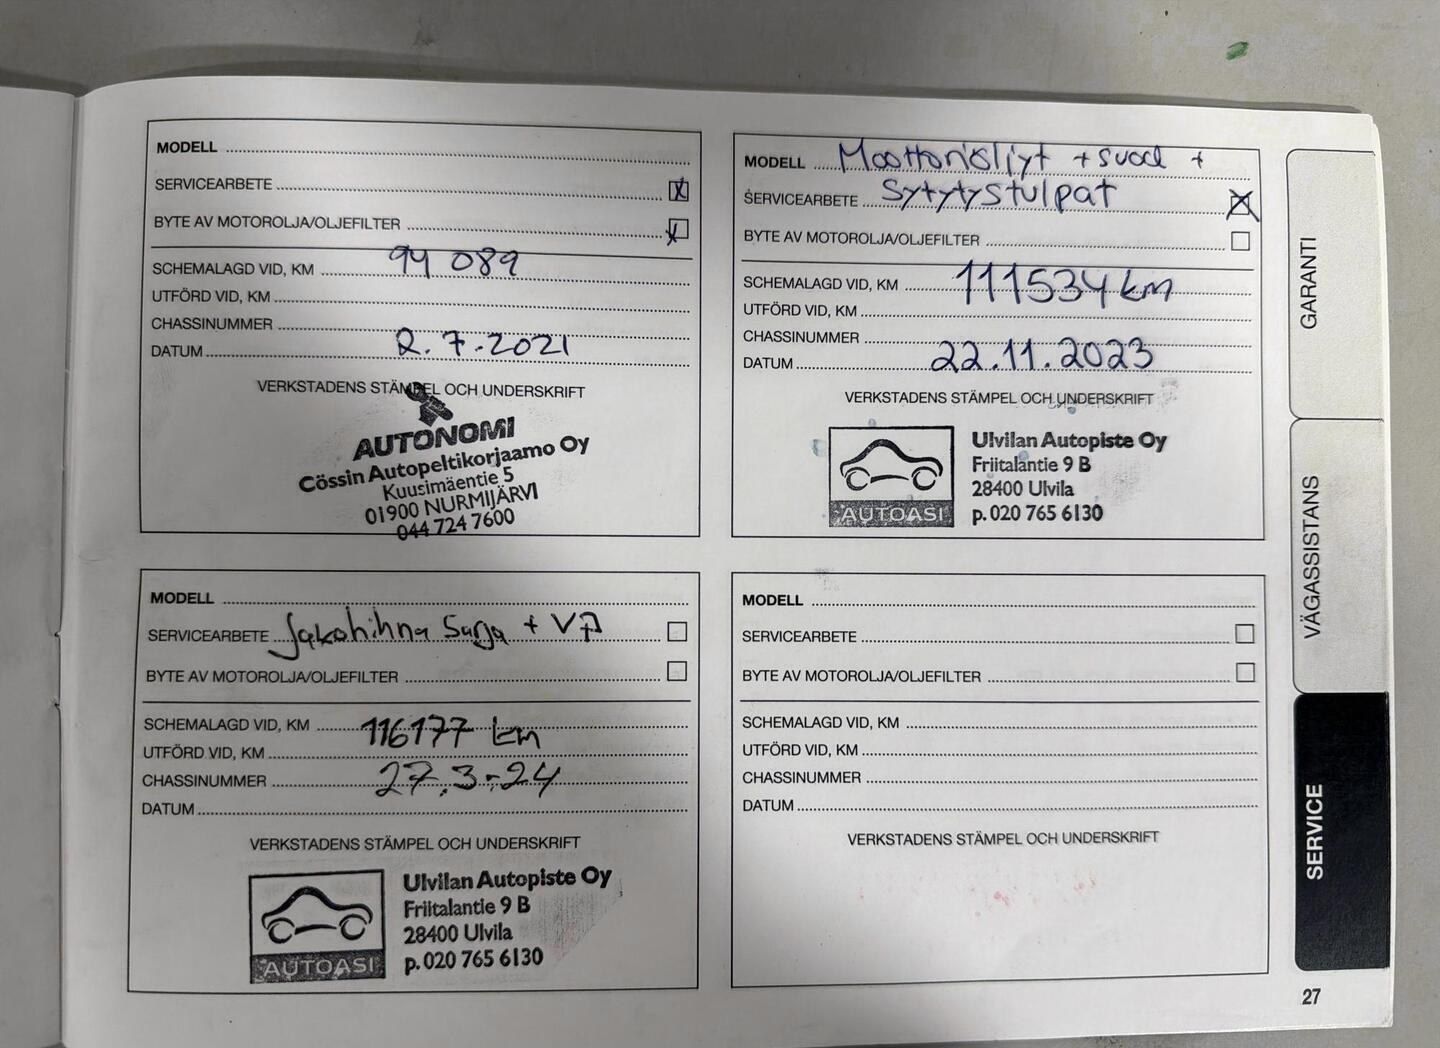 MODELL
SERVICEARBETE
BYTE AV MOTOROLJA/OLJEFILTER
SCHEMALAGD VID, KM 94 089
UTFÖRD VID, KM
CHASSINUMMER
DATUM 2.7.2021
VERKSTADENS STÄMPEL OCH UNDERSKRIFT
AUTONOMI
Cössin Autopeltikorjaamo Oy
Kuusimäentie 5
01900 NURMIJÄRVI
044 724 7600
MODELL Moottoriöljyt + suod +
SERVICEARBETE Sytytystulpat
BYTE AV MOTOROLJA/OLJEFILTER
SCHEMALAGD VID, KM 111534 km
UTFÖRD VID, KM
CHASSINUMMER
DATUM 22.11.2023
VERKSTADENS STÄMPEL OCH UNDERSKRIFT
AUTOASI
Ulvilan Autopiste Oy
Friitalantie 9 B
28400 Ulvila
p. 020 765 6130
MODELL
SERVICEARBETE Jakohihna Sarja + VP
BYTE AV MOTOROLJA/OLJEFILTER
SCHEMALAGD VID, KM 116177 km
UTFÖRD VID, KM
CHASSINUMMER 27.3.-24
DATUM
VERKSTADENS STÄMPEL OCH UNDERSKRIFT
AUTOASI
Ulvilan Autopiste Oy
Friitalantie 9 B
28400 Ulvila
p. 020 765 6130
MODELL
SERVICEARBETE
BYTE AV MOTOROLJA/OLJEFILTER
SCHEMALAGD VID, KM
UTFÖRD VID, KM
CHASSINUMMER
DATUM
VERKSTADENS STÄMPEL OCH UNDERSKRIFT
GARANTI
VÄGASSISTANS
SERVICE
27